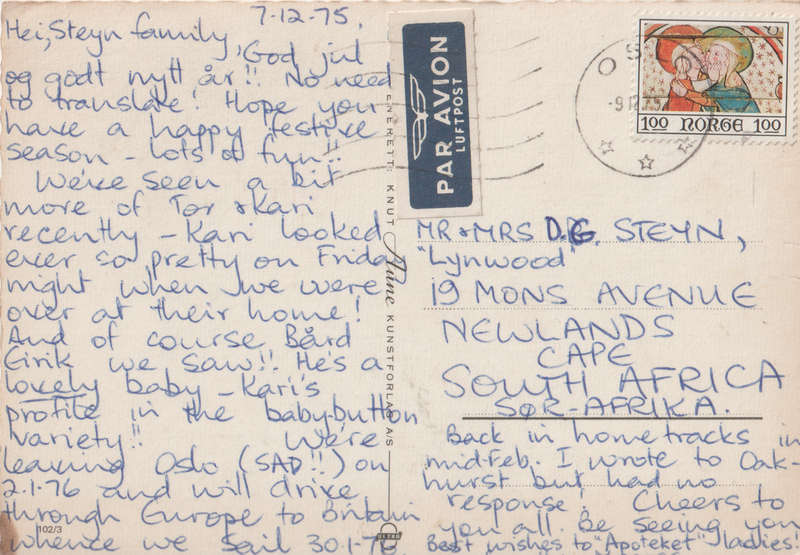 7-12-75.
Hei, Steyn family,
God jul
og godt nytt år!! No need
to translate! Hope you
have a happy festive
season - lots of fun!!
We've seen a bit
more of Tor & Kari
recently - Kari looked
ever so pretty on Friday
night when we were
over at their home!
And of course Bård
Eirik we saw!! He's a
lovely baby - Kari's
profile in the baby-button
variety!! We're
leaving Oslo (SAD!!) on
2.1.76 and will drive
through Europe to Britain
whence we sail 30.1.76
102/3
ENERETT: KNUT Aune KUNSTFORLAG A/S
PAR AVION
LUFTPOST
OSLO
-9.12.75
1.00 NORGE 1.00
MR & MRS D.G. STEYN,
"Lynwood"
19 MONS AVENUE
NEWLANDS
CAPE
SOUTH AFRICA
SØR-AFRIKA.
Back in home tracks in
mid-Feb. I wrote to Oak-
hurst but had no
response. Cheers to
you all. Be seeing you
Best wishes to "Apoteket" ladies!